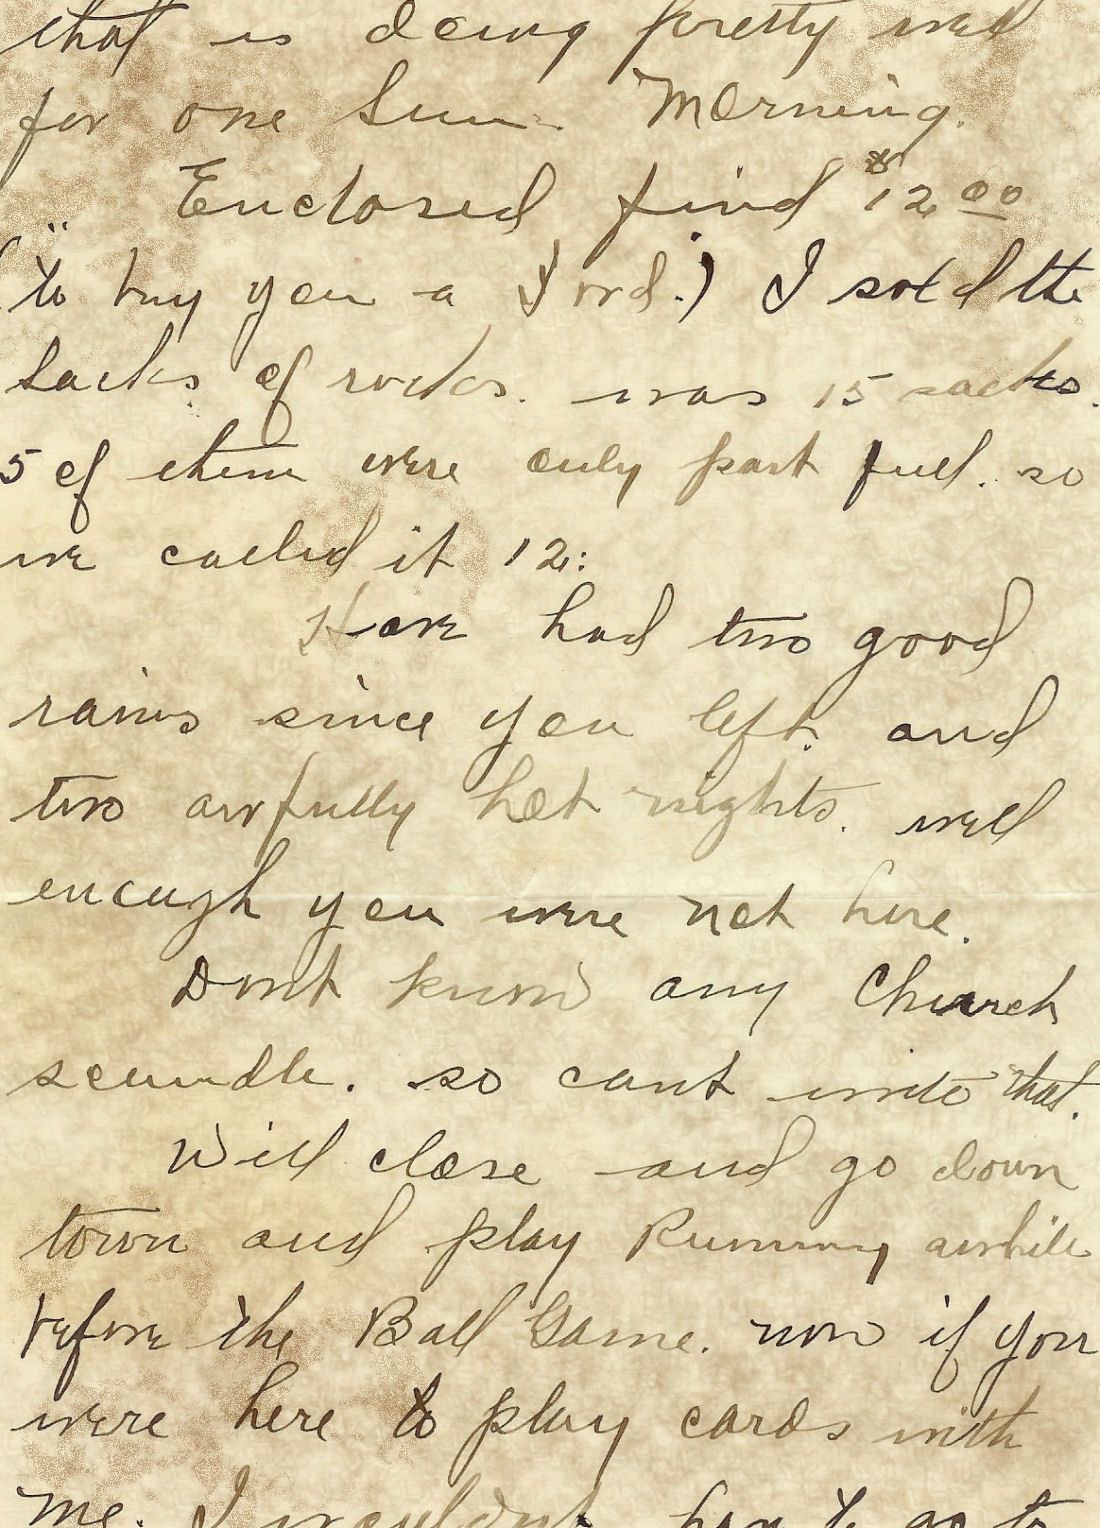 that is doing pretty well
for one Sun. Morning.
Enclosed find $12.00
(to buy you a Ford.) I sold the
sacks of rocks. was 15 sacks.
5 of them were only part full. so
we called it 12:
Have had two good
rains since you left. and
two awfully hot nights. well
enough you were not here.
Dont know any Church
scandle. so cant write that.
Will close and go down
town and play Rummy awhile
before the Ball Game. now if you
were here to play cards with
me. I wouldnt have to go to